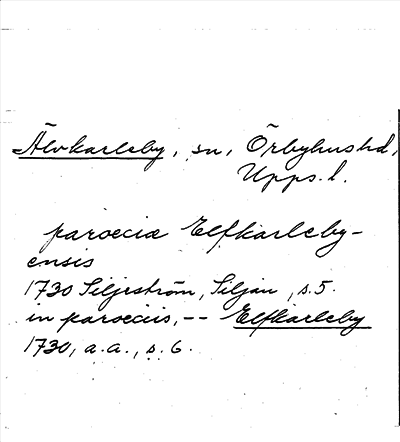 Älvkarleby, sn, Örbyhus hd,
Upps. l.
paroecia Elfkarleby-
ensis
1730 Siljeström, Siljan, s. 5.
in paroeciis, -- Elfkarleby
1730, a.a., s. 6.